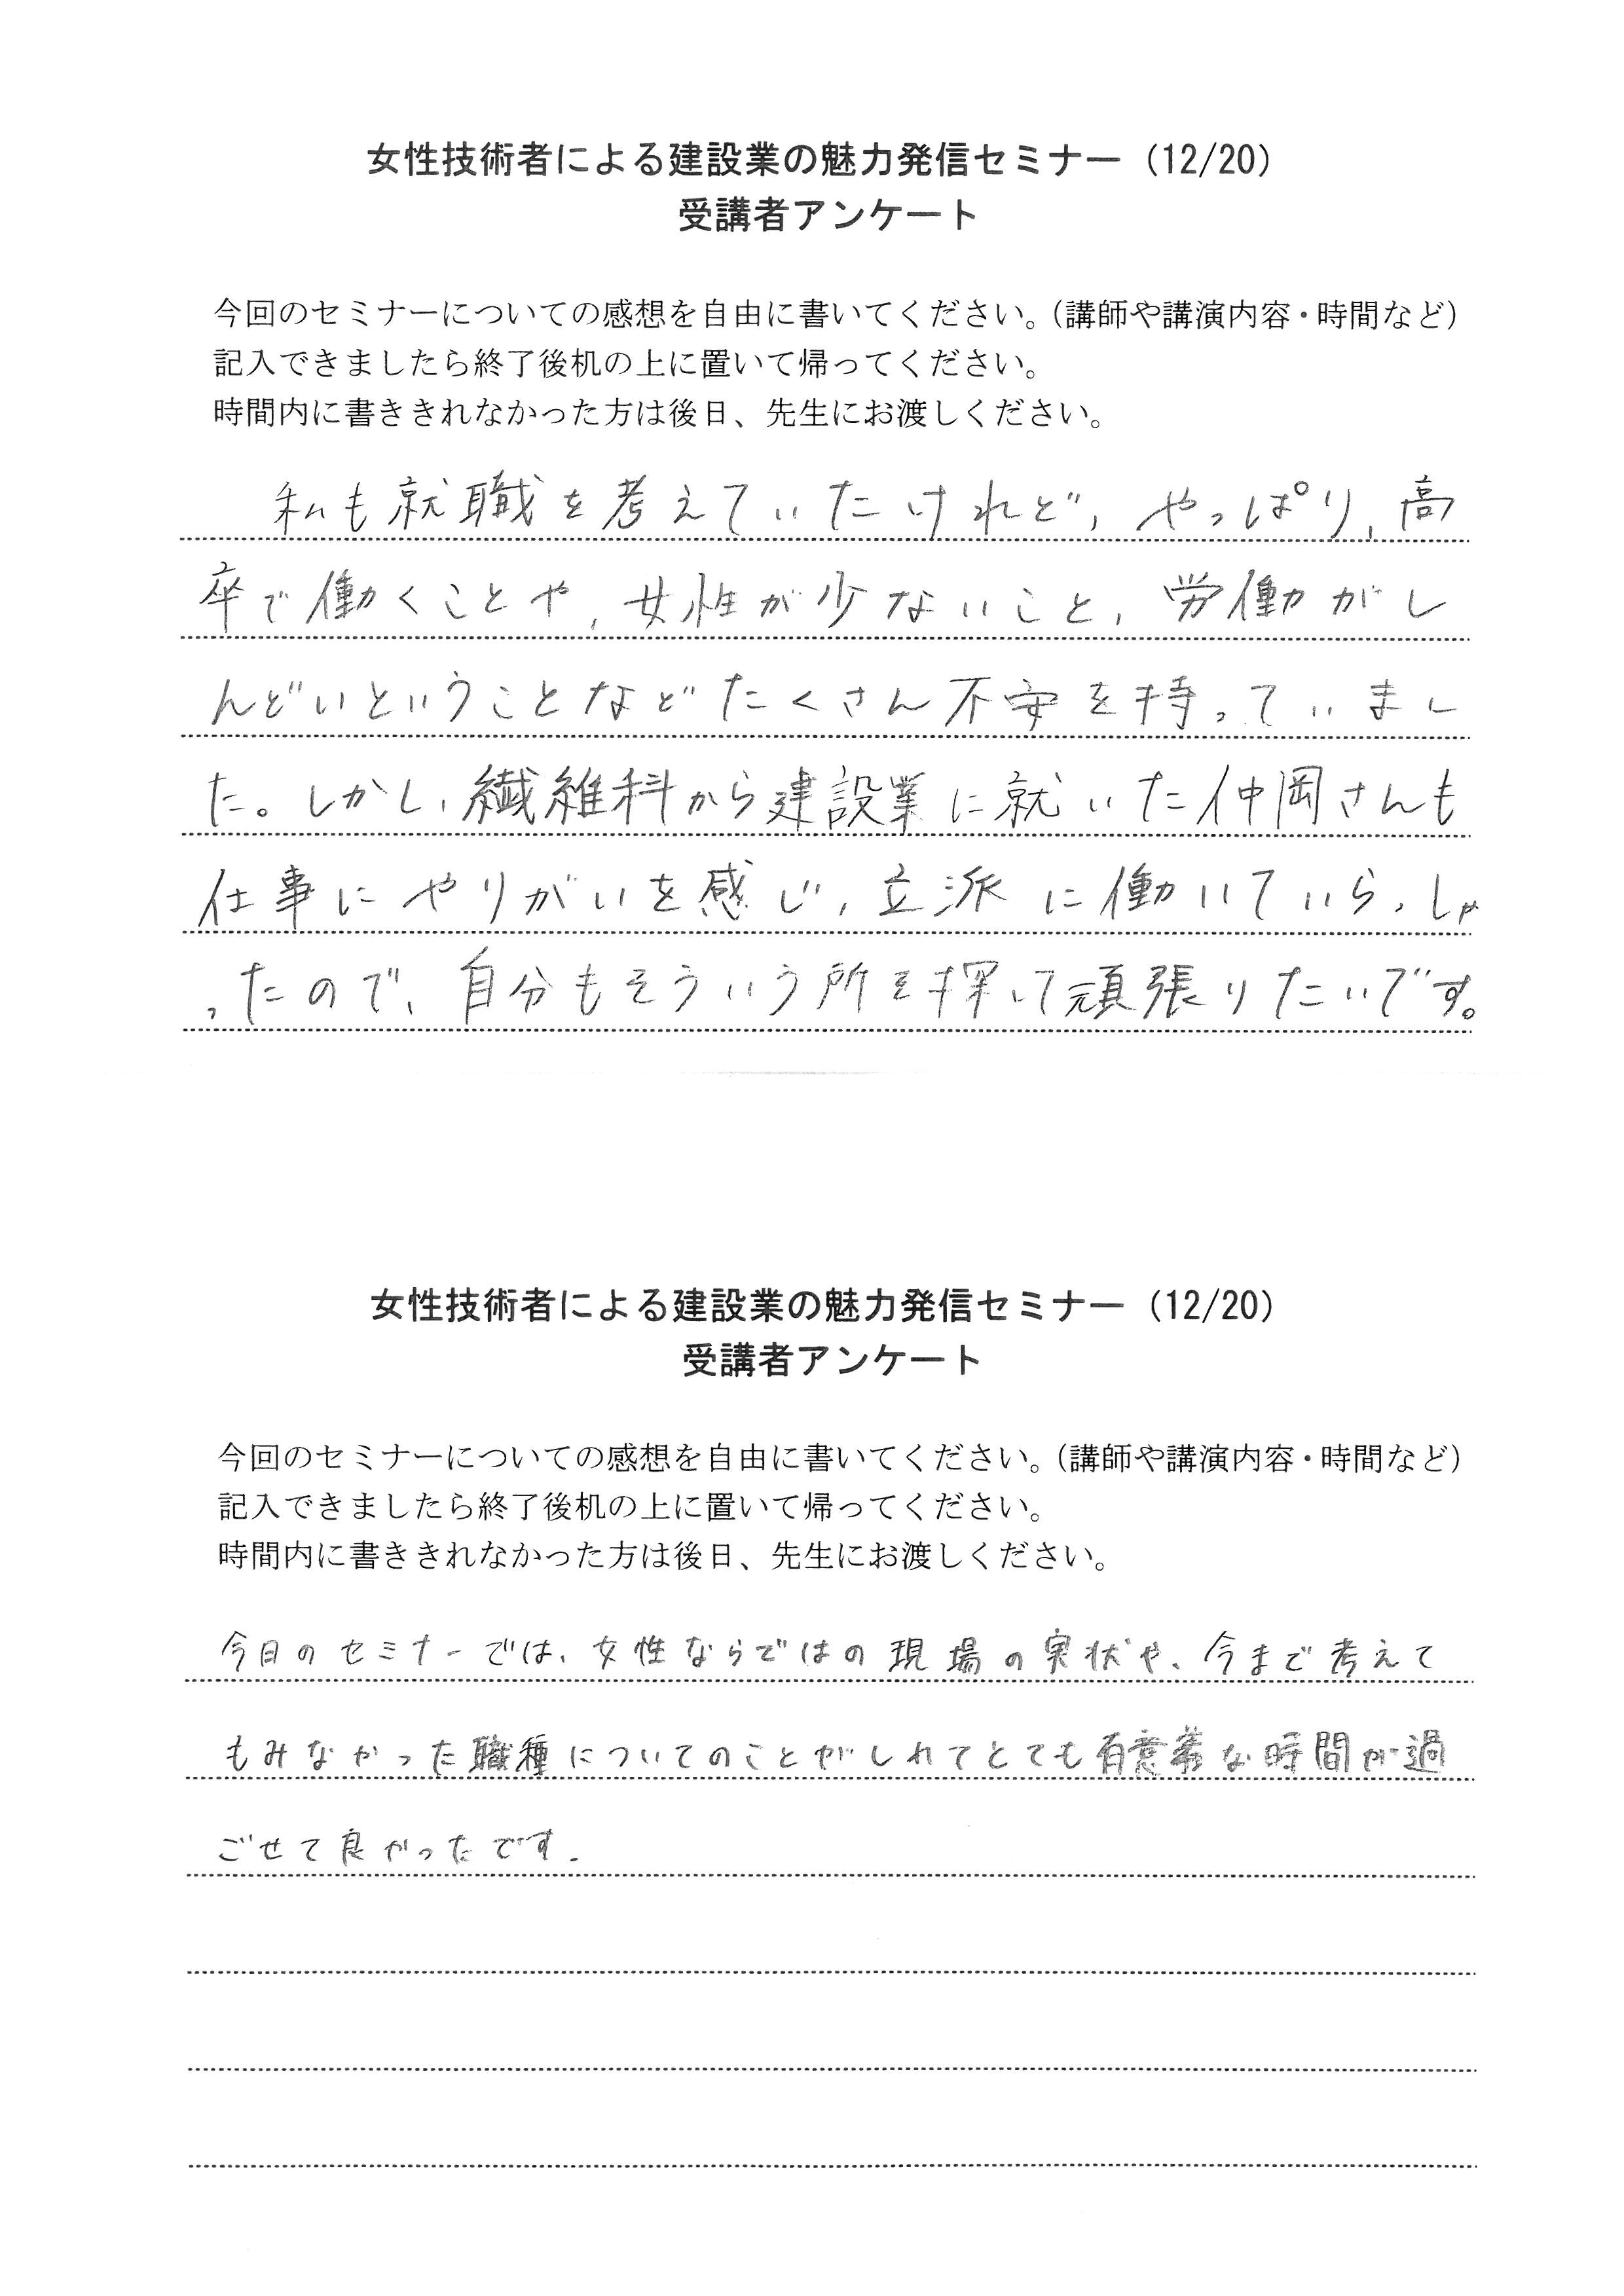 女性技術者による建設業の魅力発信セミナー（12/20）
受講者アンケート
今回のセミナーについての感想を自由に書いてください。（講師や講演内容・時間など）
記入できましたら終了後机の上に置いて帰ってください。
時間内に書ききれなかった方は後日、先生にお渡しください。
私も就職を考えていたけれど，やっぱり，高
卒で働くことや，女性が少ないこと，労働がし
んどいということなどたくさん不安を持っていまし
た。しかし，繊維科から建設業に就いた仲岡さんも
仕事にやりがいを感じ，立派に働いていらっしゃ
ったので、自分もそういう所を探して頑張りたいです。
女性技術者による建設業の魅力発信セミナー（12/20）
受講者アンケート
今回のセミナーについての感想を自由に書いてください。（講師や講演内容・時間など）
記入できましたら終了後机の上に置いて帰ってください。
時間内に書ききれなかった方は後日、先生にお渡しください。
今日のセミナーでは、女性ならではの現場の実状や、今まで考えて
もみなかった職種についてのことがしれてとても有意義な時間が過
ごせて良かったです．